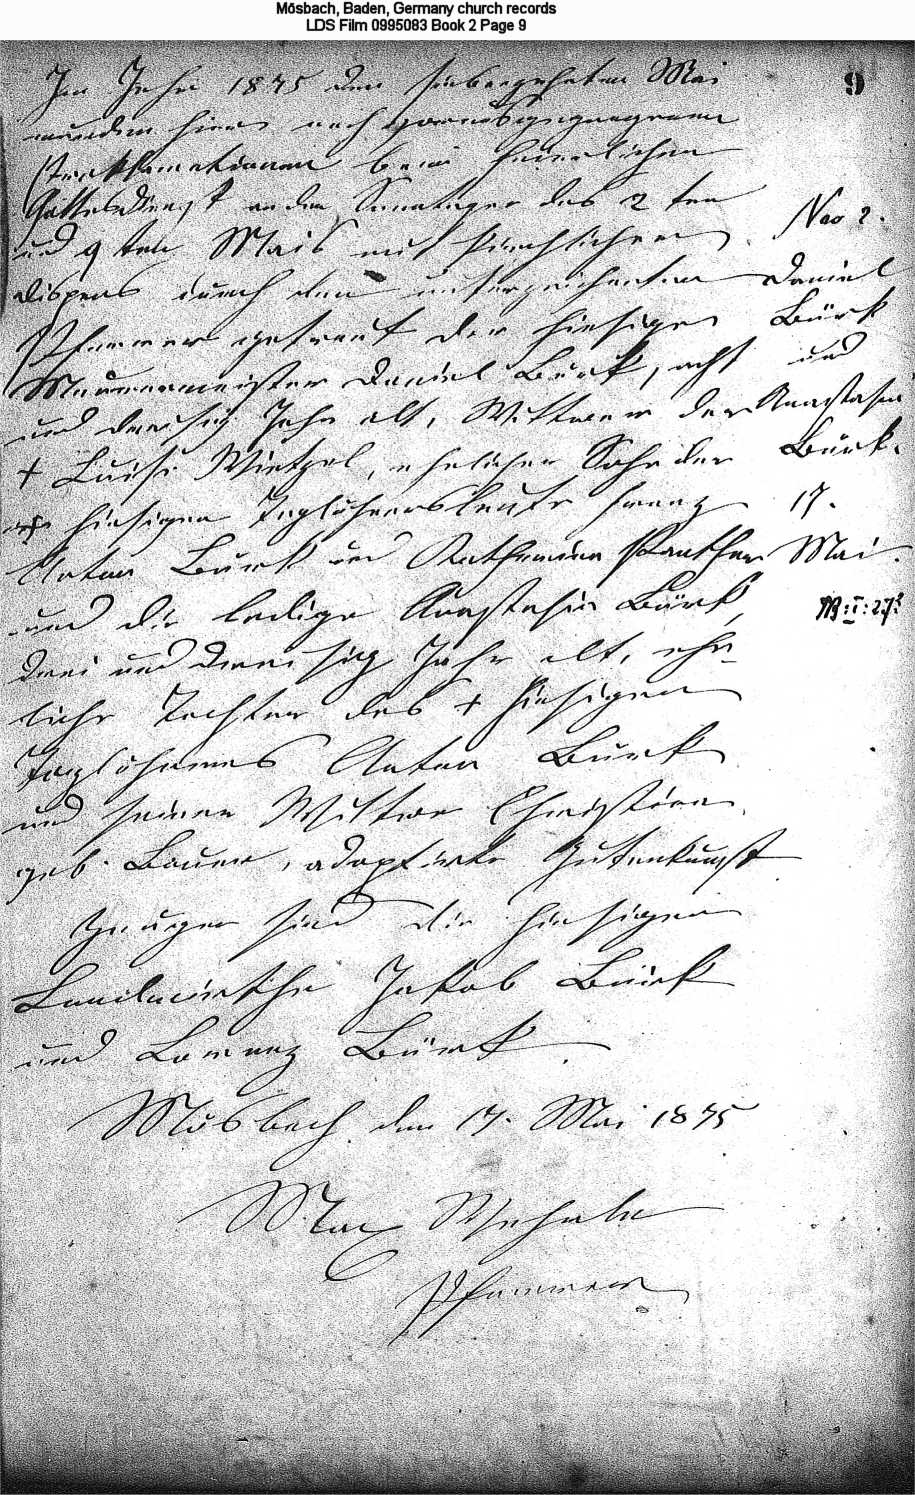 Mösbach, Baden, Germany church records
LDS Film 0995083 Book 2 Page 9
9
Im Jahr 1875 den siebenzehnten Mai
wurden hier nach vorausgegangenen
Proklamationen beim feierlichen
Gottesdienst an den Sonntagen des 2 ten
und 9 ten Mais mit
Dispens durch den unterzeichneten
Pfarrer getraut der hiesige
Maurermeister Daniel Bürk, acht
und dreisig Jahr alt, Wittwer der
+ Luise Wietzel, ehelicher Sohn der
hiesigen Taglöhnersleute Franz
Anton Bürk und Katharina Panther
und die ledige Anastasia Bürk,
drei und dreisig Jahr alt, ehe-
liche Tochter des + hiesigen
Taglöhners Anton Bürk
und seiner Wittwe Christina
geb. Bauer, adoptirte Gutenkunst
Zeugen sind die hiesigen
Landwirthe Jakob Bürk
und Lorenz Bürk.
Mösbach den 17. Mai 1875
Max Wehrle
Pfarrer
Nro 2.
Daniel
Bürk
und
Anastasia
Bürk.
17.
Mai.